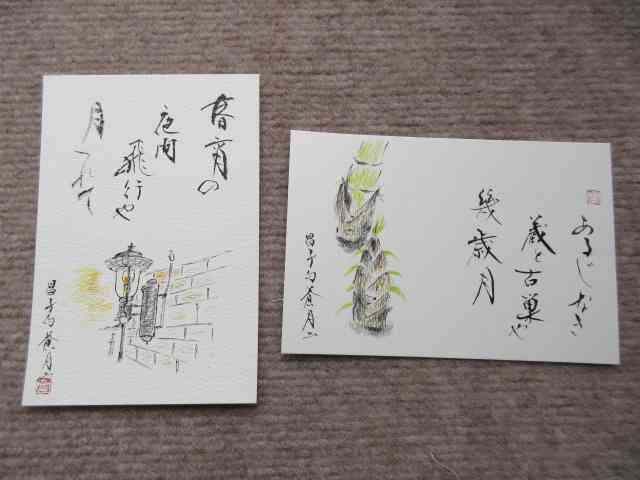 春宵の
夜間
飛行や
月つれて
昌子句蒼月
あるじなき
蔵と古巣や
幾歳月
昌子句蒼月